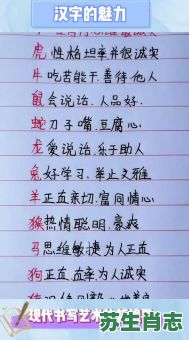 汉字的魅力
虎性格坦率并很诚实
牛吃苦能干善待他人
鼠会说话.人品好.
蛇刀子嘴.豆腐心.
龙爱说话.乐于助人
兔好学习.举止文雅
羊正直亲切.富同情心
猴热情聪明.豪爽
马思维敏捷为人正直
狗正直.直率为人诚实
现代书写艺术
苏生肖志